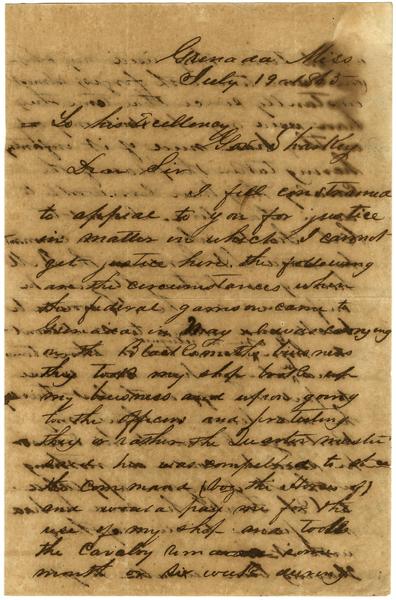 Grenada Miss
July 19 1865
To his Excellency
Gov Sharkey
Dear Sir
I fill constrained
to appeal to you for justice
in matter in which I cannot
get justice hire the following
are the circumstances when
the federal garrison came to
Grenada in May I was carrying
on the Blacksmith business
they took my shop broke up
my business and upon going
to the officers and protesting
they or rather the Quarter master
said he was compelled to
the command
and would pay me for the
use of my shop and took
the Cavalry some
month or six weeks during